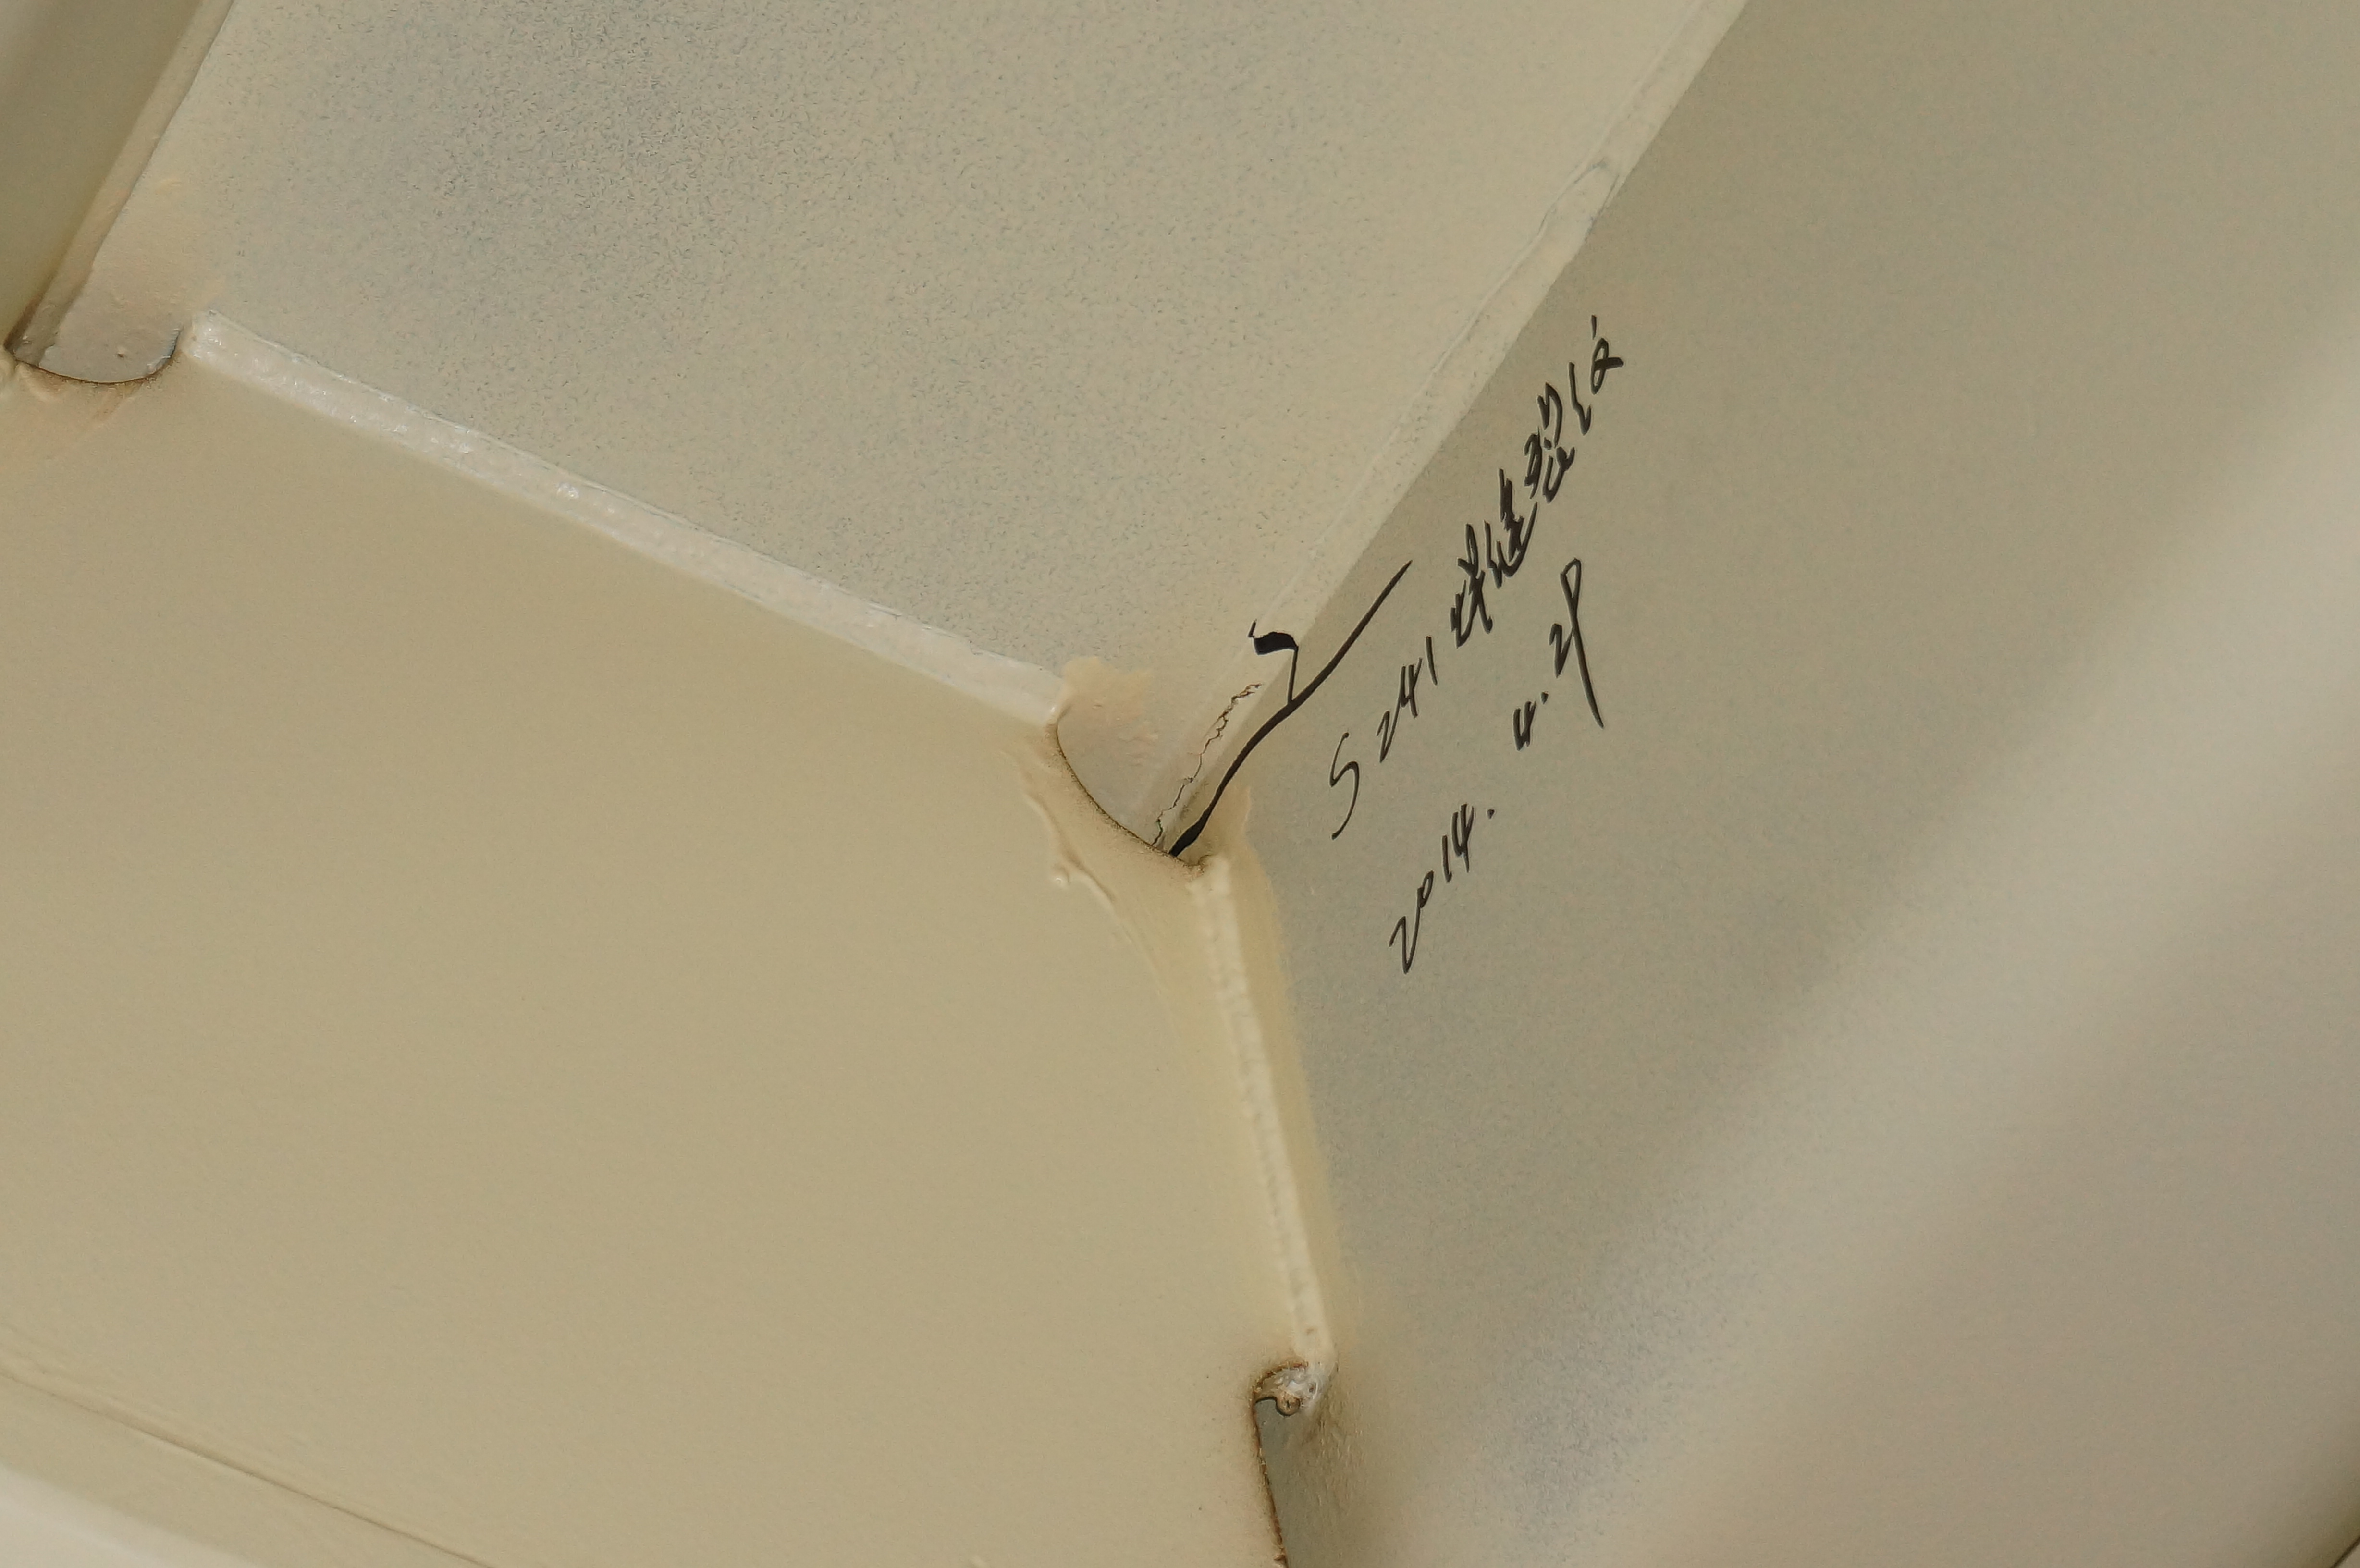 S241焊缝裂纹
2014.4.29